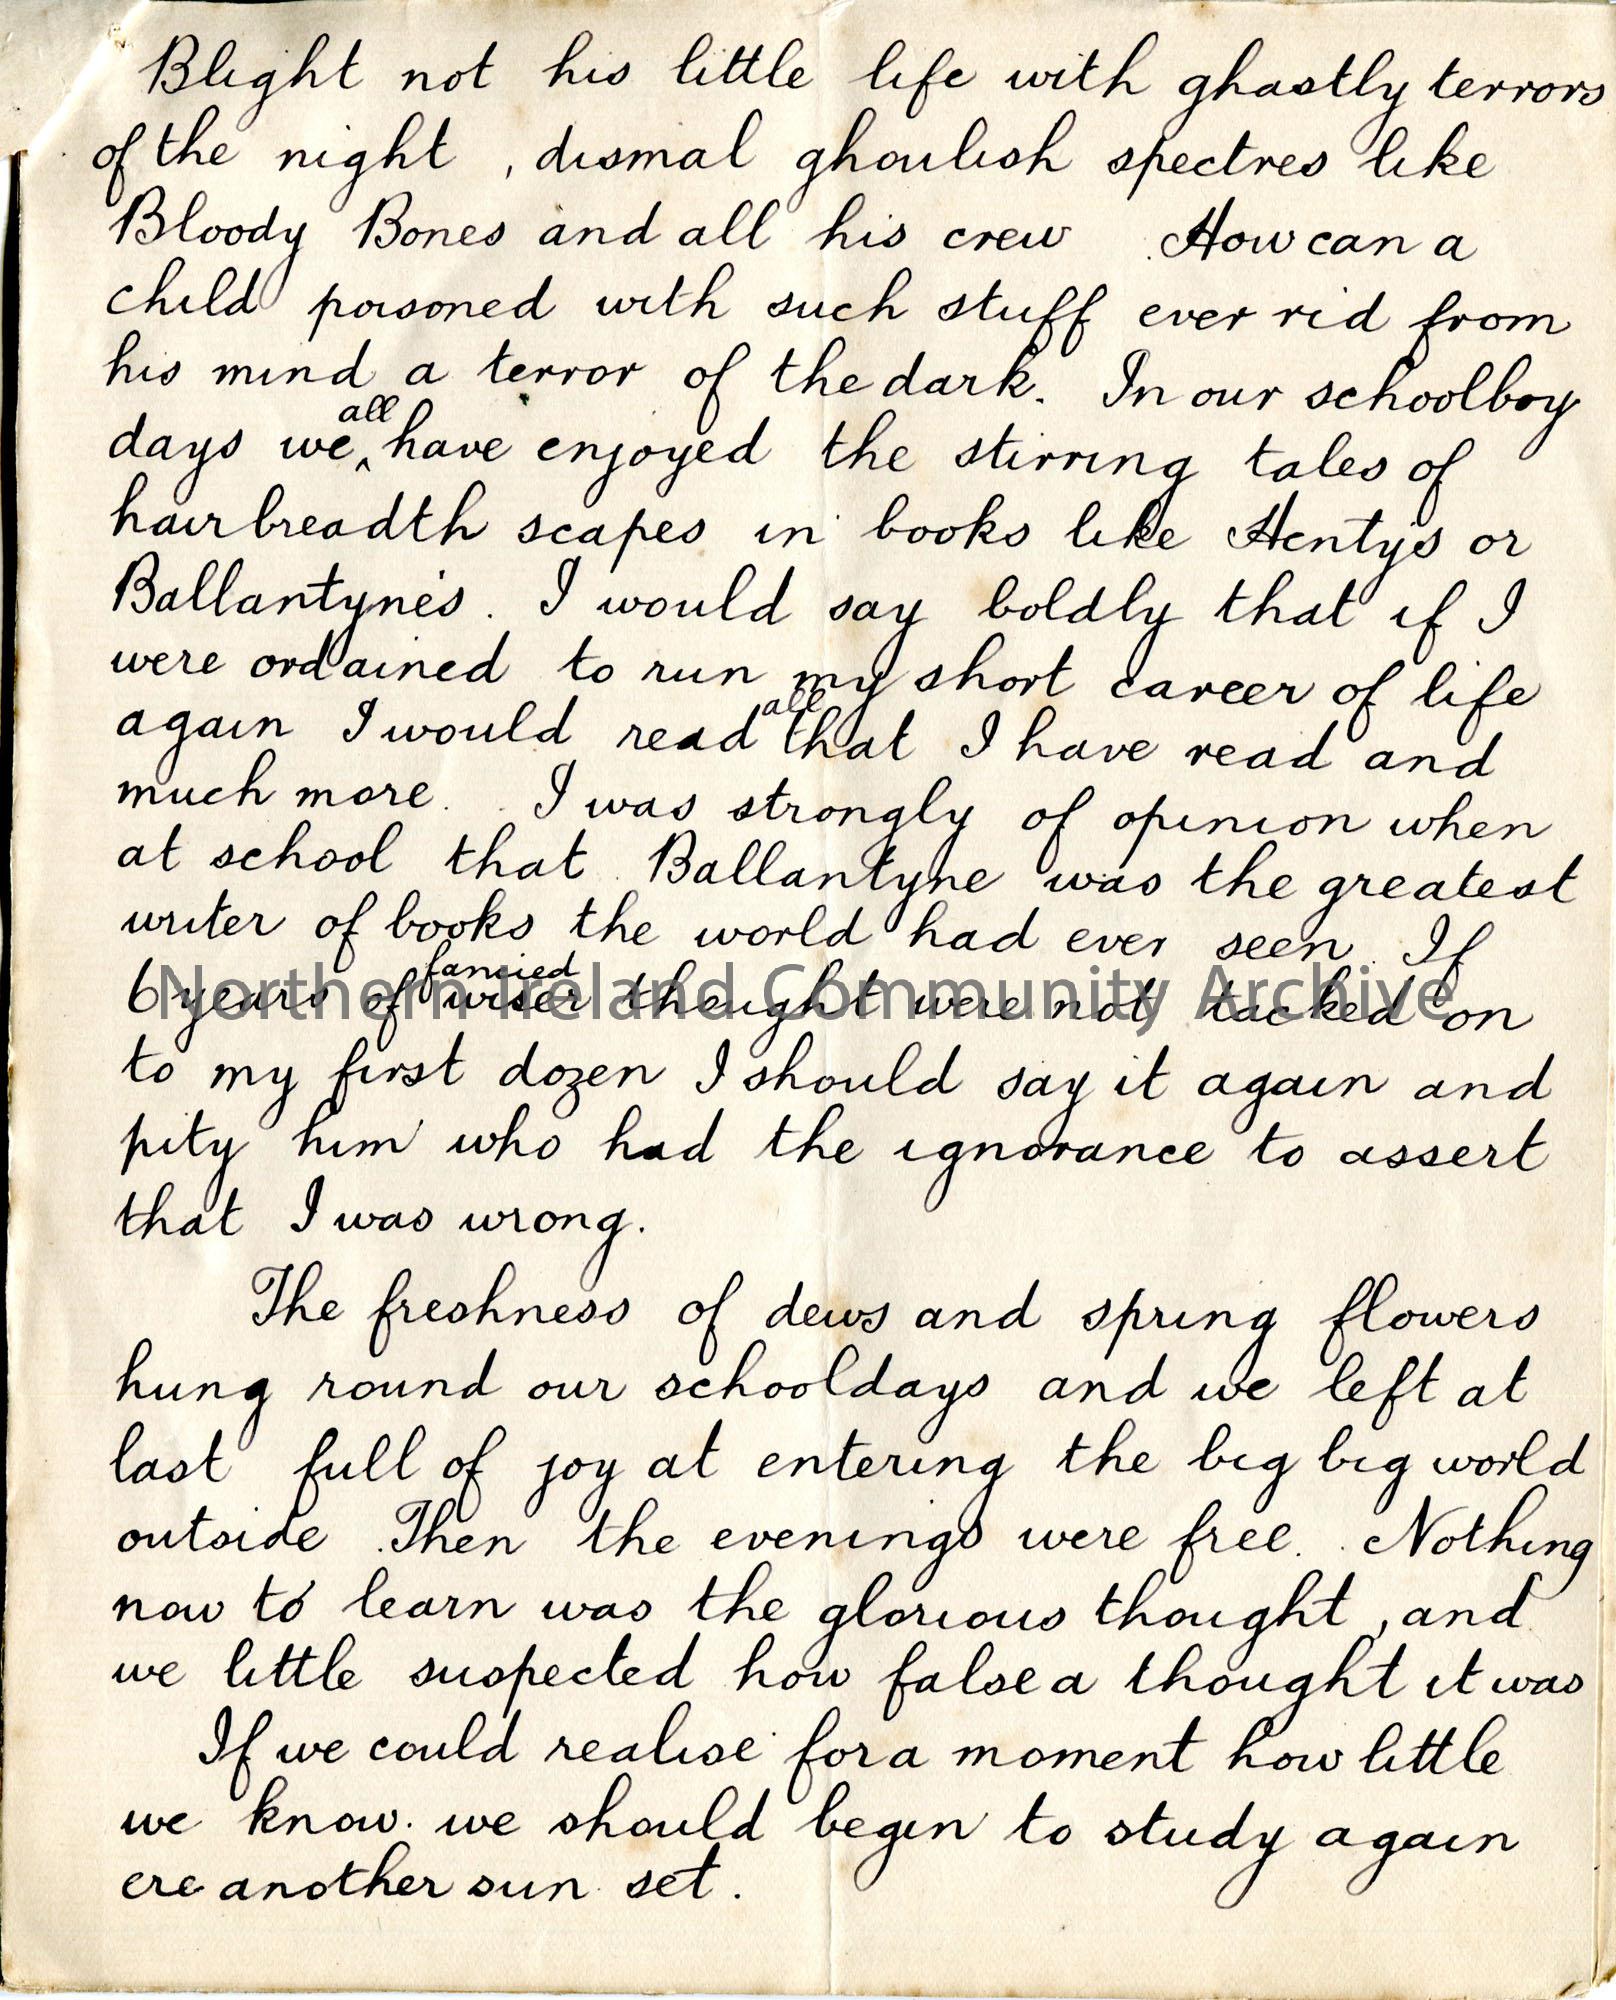 Blight not his little life with ghastly terrors
of the night , dismal ghoulish spectres like
Bloody Bones and all his crew . How can a
child poisoned with such stuff ever rid from
his mind a terror of the dark. In our schoolboy
all
days we ‸ have enjoyed the stirring tales of
hairbreadth scapes in books like Henty's or
Ballantyne's . I would say boldly that if I
were ordained to run my short career of life
all
again I would read that I have read and
much more . I was strongly of opinion when
at school that Ballantyne was the greatest
writer of books the world had ever seen . If
fancied
6 years of wiser thought were not tacked on
Northern Ireland Community Archive
to my first dozen I should say it again and
pity him who had the ignorance to assert
that I was wrong.
The freshness of dews and spring flowers
hung round our schooldays and we left at
last full of joy at entering the big big world
outside . Then the evenings were free. Nothing
now to learn was the glorious thought , and
we little suspected how false a thought it was
If we could realise for a moment how little
we know. we should begin to study again
ere another sun set .